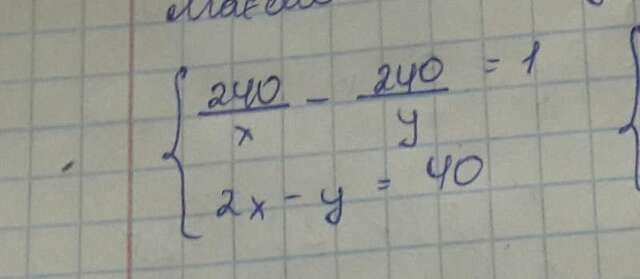 240/x - 240/y = 1
2x - y = 40